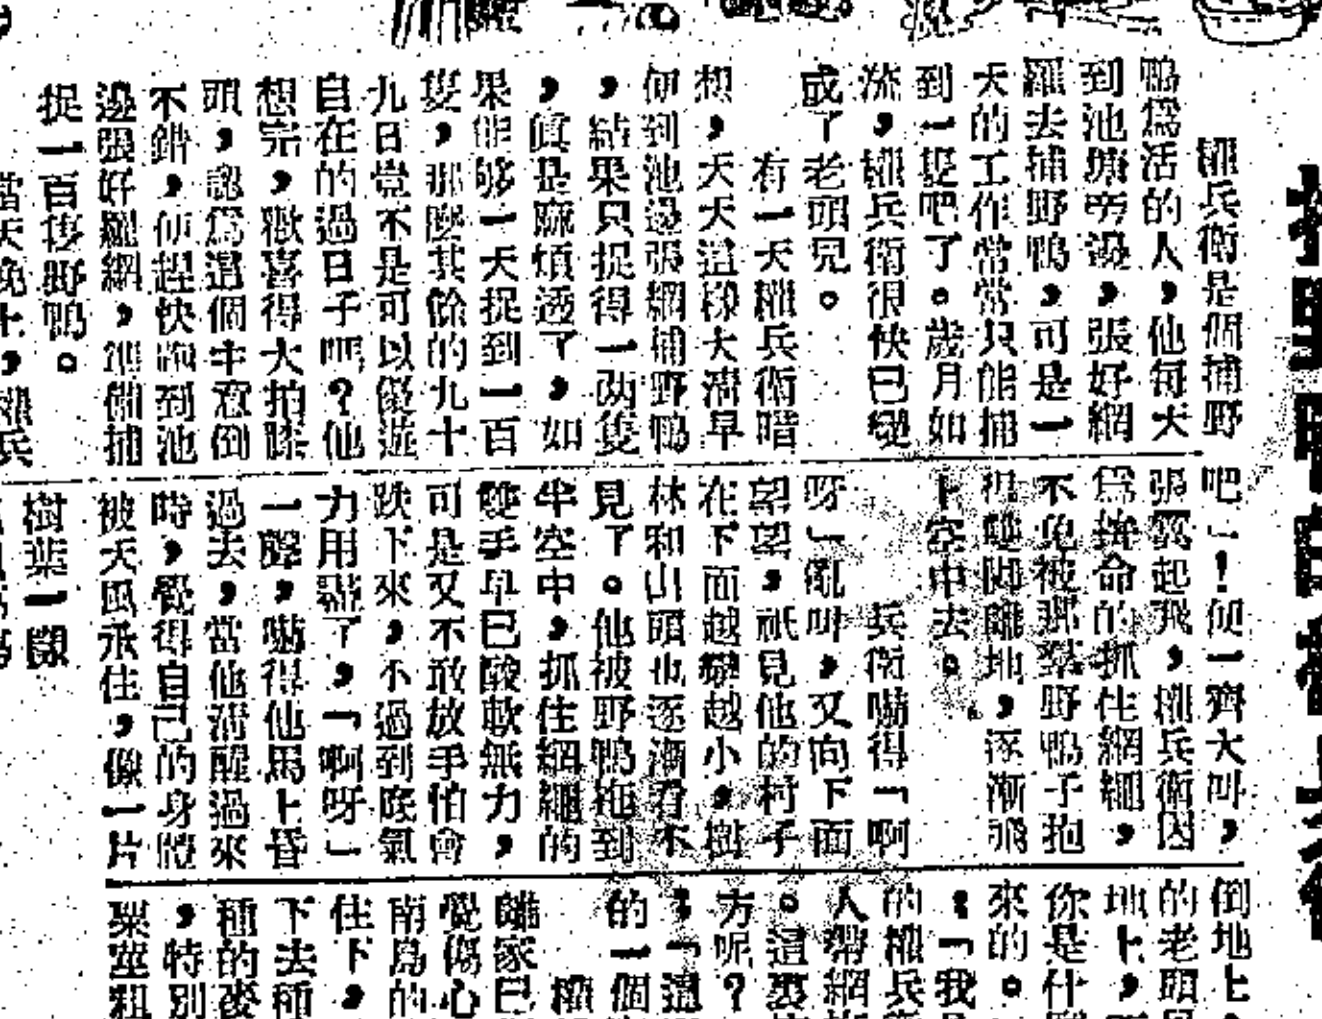 權兵衛是個捕野
鴨爲活的人，他每天
到池塘旁邊，張好網
羅去捕野鴨，可是一
天的工作常常只能捕
到一隻吧了。歲月如
流，權兵衛很快已變
成了老頭兒。
有一天權兵衛暗
想，天天這樣大淸早
便到池邊張網捕野鴨
，結果只捉得一兩隻
，眞是麻煩透了，如
果能够一天捉到一百
隻，那麼其餘的九十
九日豈不是可以優遊
自在的過日子嗎？他
想完，歡喜得大拍膝
頭，認爲這個主意倒
不錯，便趕快跑到池
邊張好羅網，準備捕
捉一百隻野鴨。
當天晚上，權兵
吧」！便一齊大叫，
張翼起飛，權兵衛因
爲拚命的抓住網繩，
不免被那羣野鴨子抱
得雙脚離地，逐漸飛
上空中去。
兵衛嚇得「啊
呀」亂叫，又向下面
望望，祇見他的村子
在下面越變越小，樹
林和山頭也逐漸看不
見了。他被野鴨拖到
半空中，抓住網繩的
雙手早已酸軟無力，
可是又不敢放手怕會
跌下來，不過到底氣
力用盡了，「啊呀」
一聲，嚇得他馬上昏
過去，當他淸醒過來
時，覺得自己的身體
被大風承住，像一片
樹葉一闋
倒地上
的老頭
地上，
你是什
來的。
：「我
的權兵
人帶網
。這裏
方呢？
：「這
的一個
權
離家已
覺傷心
南爲的
住下，
下去種
種的麥
，特別
粟莖粗